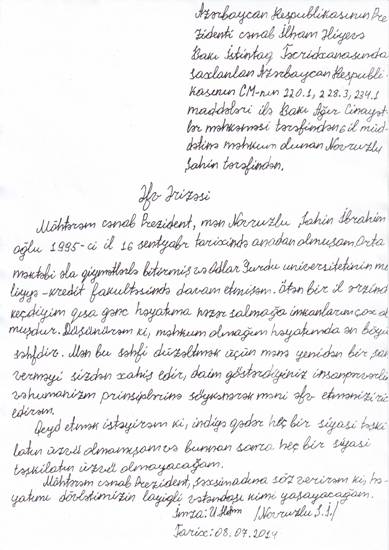 Azərbaycan Respublikasının Pre
zidenti cənab İlham Əliyevə
Bakı İstintaq Təcridxanasında
saxlanılan Azərbaycan Respubli-
kasının CM-nın 220.1, 228.3, 234.1
maddələri ilə Bakı Ağır Cinayət-
lər məhkəməsi tərəfindən 6 il müd-
dətinə məhkum olunan Novruzlu
Şahin tərəfindən.
Əfv Ərizəsi
Möhtərəm cənab Prezident, mən Novruzlu Şahin İbrahim
oğlu 1995-ci il 16 sentyabr tarixində anadan olmuşam. Orta
məktəbi əla qiymətlərlə bitirmiş və Odlar Yurdu universitetinin ma
liyyə-kredit fakultəsində davam etmişəm. Ötən bir il ərzində
keçdiyim qısa gənc həyatıma nəzər salmağa imkanlarım çox ol
muşdur. Düşünürəm ki, məhkum olmağım həyatımda ən böyük
səhfdir. Mən bu səhfi düzəltmək üçün mənə yenidən bir şans
verməyi sizdən xahiş edir, daim göstərdiyiniz insanpərvərlik
və humanizm prinsiplərinə söykənərək məni əfv etmənizi rica
edirəm.
Qeyd etmək istəyirəm ki, indiyə qədər heç bir siyasi təşki
latın üzvü olmamışam və bunnan sonra heç bir siyasi
təşkilatın üzvü olmayacağam.
Möhtərəm cənab Prezident, şəxsinizdə söz verirəm ki, hə-
yatımı dövlətimizin layiqli vətəndaşı kimi yaşayacağam.
İmza: /Novruzlu Ş.İ./
Tarix: 08.07.2014